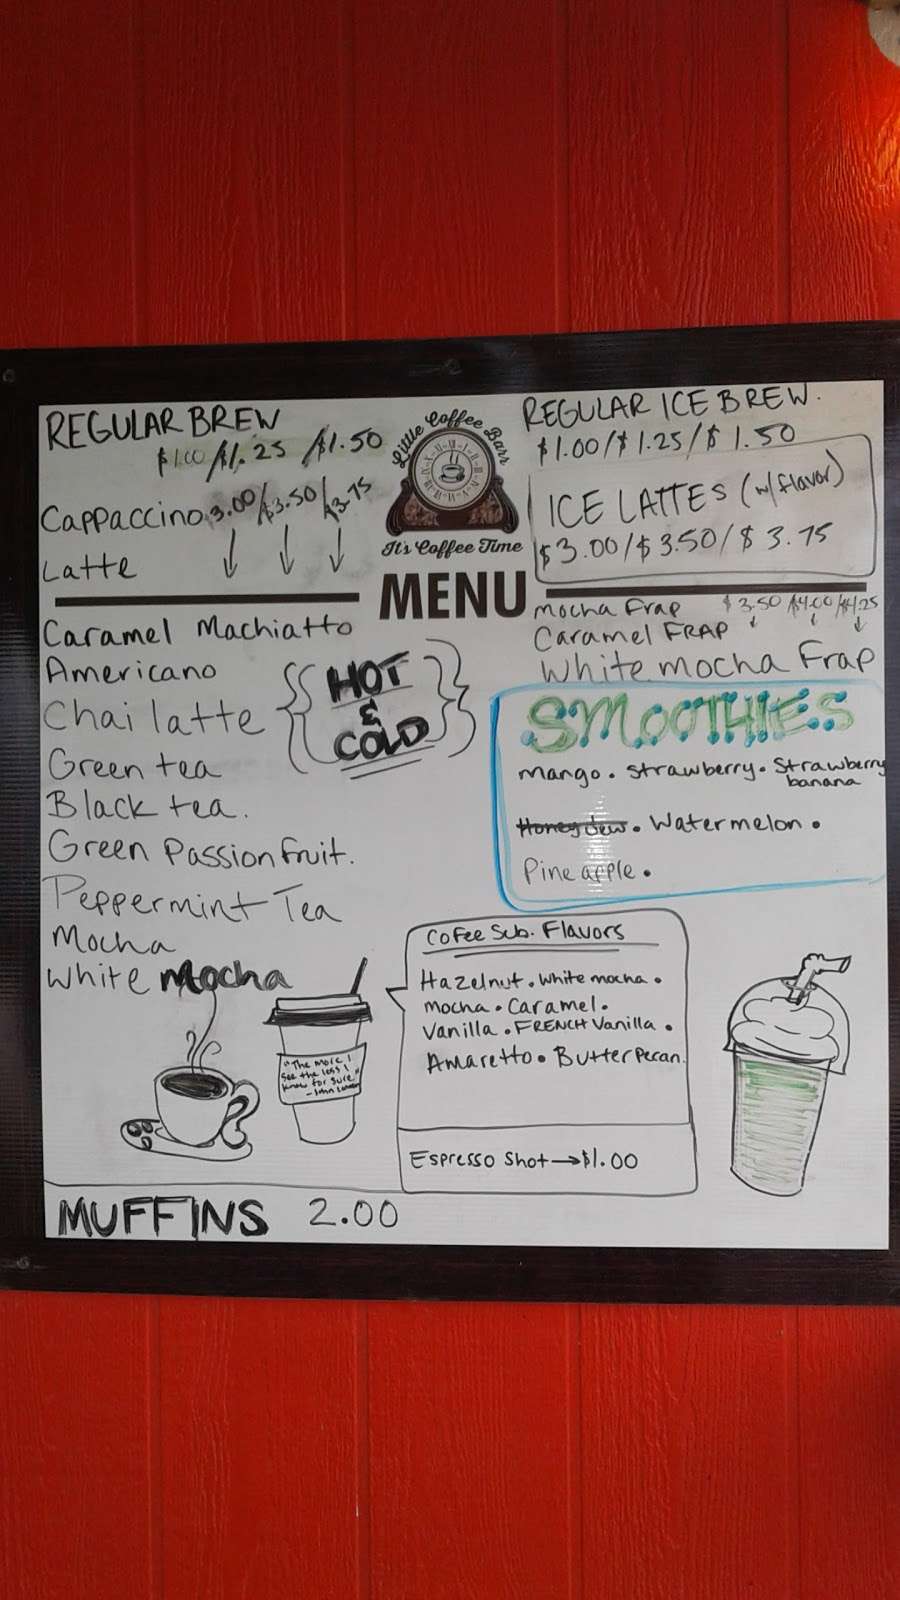 REGULAR BREW
$1.00/$1.25/$1.50
Cappaccino 3.00/$3.50/$3.75
Latte
Little Coffee Barr
It's Coffee Time
MENU
REGULAR ICE BREW.
$1.00/$1.25/$1.50
ICE LATTES (w/flavor)
$3.00/$3.50/$3.75
Caramel Machiatto
Americano
Chai latte
Green tea
Black tea.
Green Passion fruit.
Peppermint Tea
Mocha
White Mocha
HOT
&
COLD
Mocha Frap $3.50/$4.00/$4.25
Caramel FRAP
White mocha Frap
SMOOTHIES
mango. strawberry. Strawberry
banana
Honeydew. Watermelon.
Pineapple.
Cofee Sub. Flavors
Hazelnut. White mocha.
mocha. Caramel.
Vanilla. FRENCH Vanilla.
Amaretto. Butter Pecan.
Espresso Shot→$1.00
"The more I
see the less I
know for sure."
- John Lennon
MUFFINS 2.00